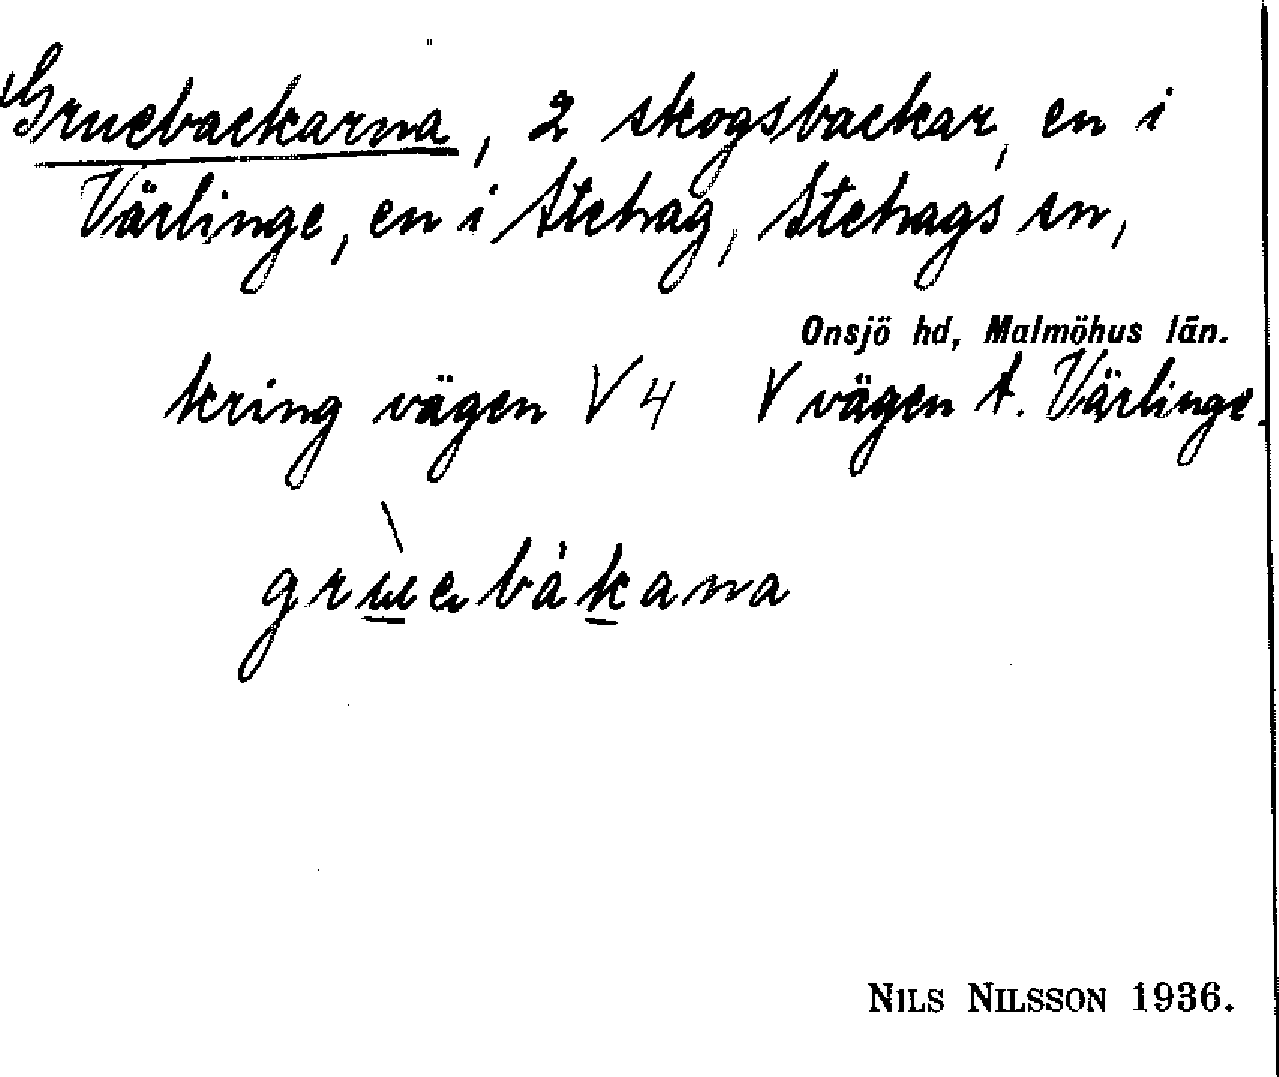 Gruebackarna, 2 skogsbackar, en i
Värlinge, en i Stehag, Stehags sn,
Onsjö hd, Malmöhus län.
kring vägen V 4 V vägen t. Värlinge.
grùebåkana
NILS NILSSON 1936.